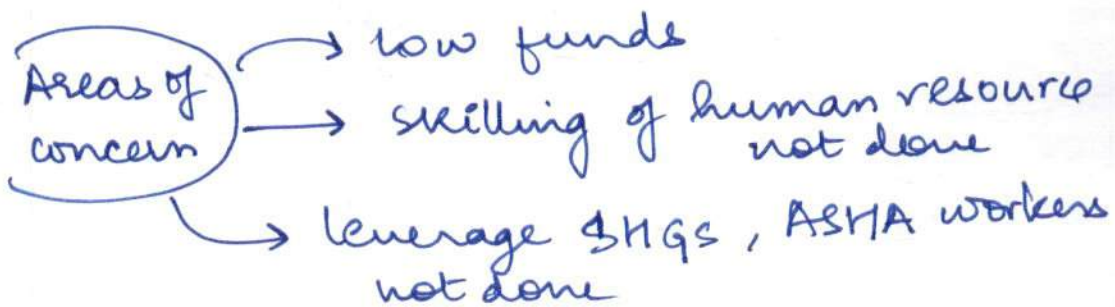 Areas of
concern
low funds
skilling of human resource
not done
leverage SHGs, ASHA workers
not done